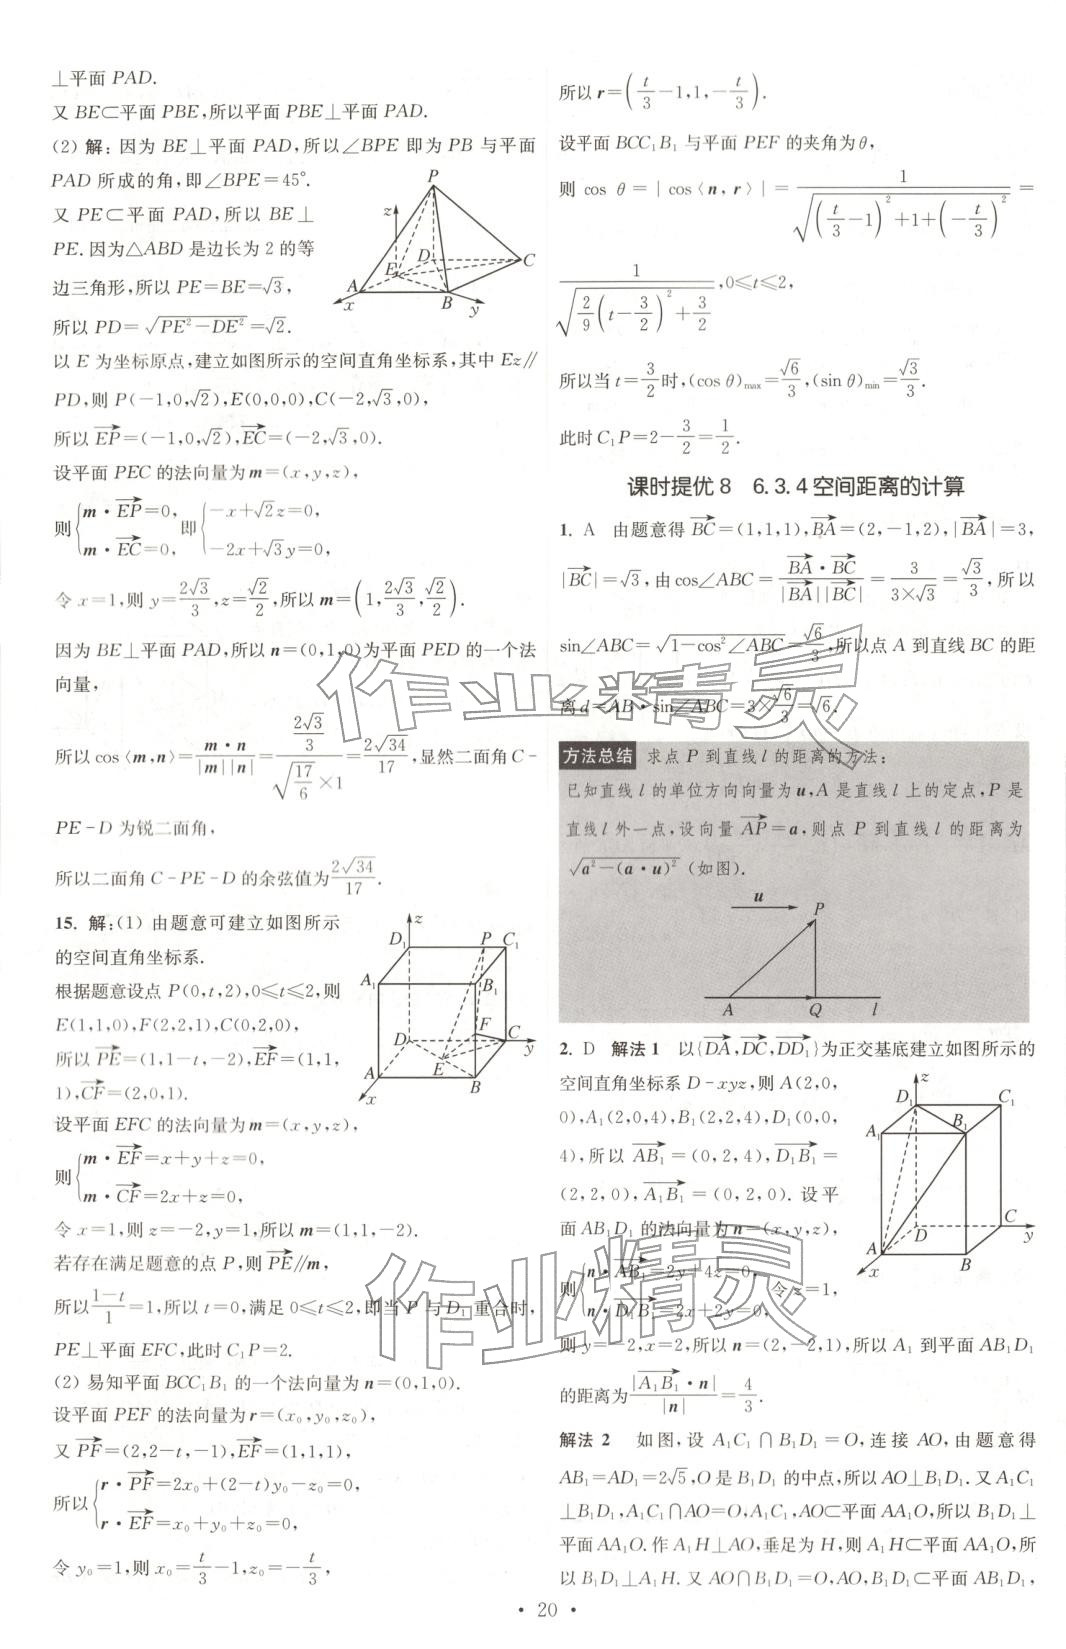 ⊥平面 PAD.
又 BE⊂平面 PBE,所以平面 PBE⊥平面 PAD.
(2) 解: 因为 BE⊥平面 PAD,所以∠BPE 即为 PB 与平面
PAD 所成的角,即∠BPE=45°.
又 PE⊂平面 PAD,所以 BE⊥
PE.因为△ABD 是边长为 2 的等
边三角形,所以 PE=BE=√3,
所以 PD=√(PE²-DE²)=√2.
P
z
D
C
E
A
B
x
y
以 E 为坐标原点,建立如图所示的空间直角坐标系,其中 Ez∥
PD,则 P(-1,0,√2),E(0,0,0),C(-2,√3,0),
所以 EP→=(-1,0,√2),EC→=(-2,√3,0).
设平面 PEC 的法向量为 m=(x,y,z),
则{m·EP→=0, 即{-x+√2z=0,
m·EC→=0, -2x+√3y=0,
令 x=1,则 y=2√3/3,z=√2/2,所以 m=(1,2√3/3,√2/2).
因为 BE⊥平面 PAD,所以 n=(0,1,0)为平面 PED 的一个法
向量,
所以 cos〈m,n〉=m·n/(|m||n|)=(2√3/3)/(√(17/6)×1)=2√34/17,显然二面角 C-
PE-D 为锐二面角,
所以二面角 C-PE-D 的余弦值为2√34/17.
15. 解:(1) 由题意可建立如图所示
的空间直角坐标系.
根据题意设点 P(0,t,2),0⩽t⩽2,则
E(1,1,0),F(2,2,1),C(0,2,0),
所以 PE→=(1,1-t,-2),EF→=(1,1,
1),CF→=(2,0,1).
z
D₁
P
C₁
A₁
B₁
F
D
C
y
E
A
B
x
设平面 EFC 的法向量为 m=(x,y,z),
则{m·EF→=x+y+z=0,
m·CF→=2x+z=0,
令 x=1,则 z=-2,y=1,所以 m=(1,1,-2).
若存在满足题意的点 P,则 PE→∥m,
所以(1-t)/1=1,所以 t=0,满足 0⩽t⩽2,即当 P 与 D₁ 重合时,
PE⊥平面 EFC,此时 C₁P=2.
(2) 易知平面 BCC₁B₁ 的一个法向量为 n=(0,1,0).
设平面 PEF 的法向量为 r=(x₀,y₀,z₀),
又 PF→=(2,2-t,-1),EF→=(1,1,1),
所以{r·PF→=2x₀+(2-t)y₀-z₀=0,
r·EF→=x₀+y₀+z₀=0,
令 y₀=1,则 x₀=t/3-1,z₀=-t/3,
所以 r=(t/3-1,1,-t/3).
设平面 BCC₁B₁ 与平面 PEF 的夹角为θ,
则 cos θ=|cos〈n,r〉|=1/√((t/3-1)²+1+(-t/3)²)=
1/√(2/9(t-3/2)²+3/2),0⩽t⩽2,
所以当 t=3/2时,(cos θ)max=√6/3,(sin θ)min=√3/3.
此时 C₁P=2-3/2=1/2.
课时提优 8 6.3.4 空间距离的计算
1. A 由题意得 BC→=(1,1,1),BA→=(2,-1,2),|BA→|=3,
|BC→|=√3,由 cos∠ABC=BA→·BC→/(|BA→||BC→|)=3/(3×√3)=√3/3,所以
sin∠ABC=√(1-cos²∠ABC)=√6/3,所以点 A 到直线 BC 的距
离 d=AB·sin∠ABC=3×√6/3=√6.
方法总结 求点 P 到直线 l 的距离的方法:
已知直线 l 的单位方向向量为 u,A 是直线 l 上的定点,P 是
直线 l 外一点,设向量 AP→=a,则点 P 到直线 l 的距离为
√(a²-(a·u)²) (如图).
u
P
A
Q
l
2. D 解法 1 以{DA→,DC→,DD₁→}为正交基底建立如图所示的
空间直角坐标系 D-xyz,则 A(2,0,
0),A₁(2,0,4),B₁(2,2,4),D₁(0,0,
4),所以 AB₁→=(0,2,4),D₁B₁→=
(2,2,0),A₁B₁→=(0,2,0).设平
面 AB₁D₁ 的法向量为 n=(x,y,z),
则{n·AB₁→=2y+4z=0, 令 z=1,
n·D₁B₁→=2x+2y=0,
z
D₁
C₁
A₁
B₁
C
A
D
y
x
B
则 y=-2,x=2,所以 n=(2,-2,1),所以 A₁ 到平面 AB₁D₁
的距离为|A₁B₁→·n|/|n|=4/3.
解法 2 如图,设 A₁C₁∩B₁D₁=O,连接 AO,由题意得
AB₁=AD₁=2√5,O 是 B₁D₁ 的中点,所以 AO⊥B₁D₁.又 A₁C₁
⊥B₁D₁,A₁C₁∩AO=O,A₁C₁,AO⊂平面 AA₁O,所以 B₁D₁⊥
平面 AA₁O.作 A₁H⊥AO,垂足为 H,则 A₁H⊂平面 AA₁O,所
以 B₁D₁⊥A₁H.又 AO∩B₁D₁=O,AO,B₁D₁⊂平面 AB₁D₁,
· 20 ·
作业精灵
作业精灵